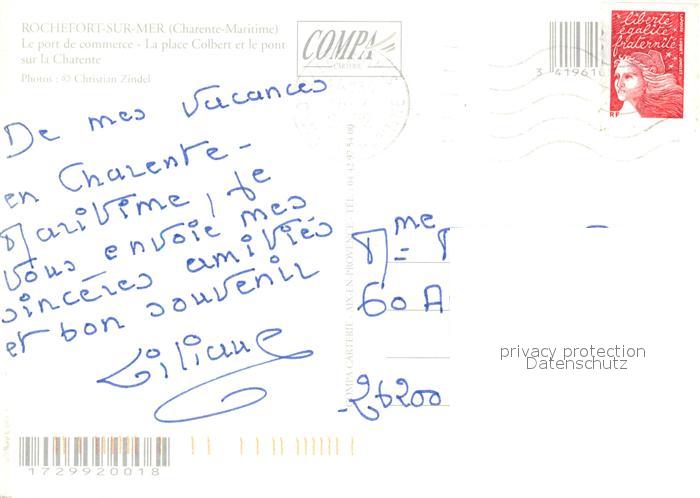 ROCHEFORT-SUR-MER (Charente-Maritime)
Le port de commerce - La place Colbert et le pont
sur la Charente
Photos : © Christian Zindel
COMPA
CARTERIE
3 419610
liberté
égalité
fraternité
RF
De mes vacances
en Charente-
Maritime, je
vous envoie mes
sincères amitiés
et bon souvenir
Liliane
COMPA CARTERIE AIX-EN-PROVENCE - TEL. 04 42 97 54 00
Mme
60 A
26200
privacy protection
Datenschutz
1729920018